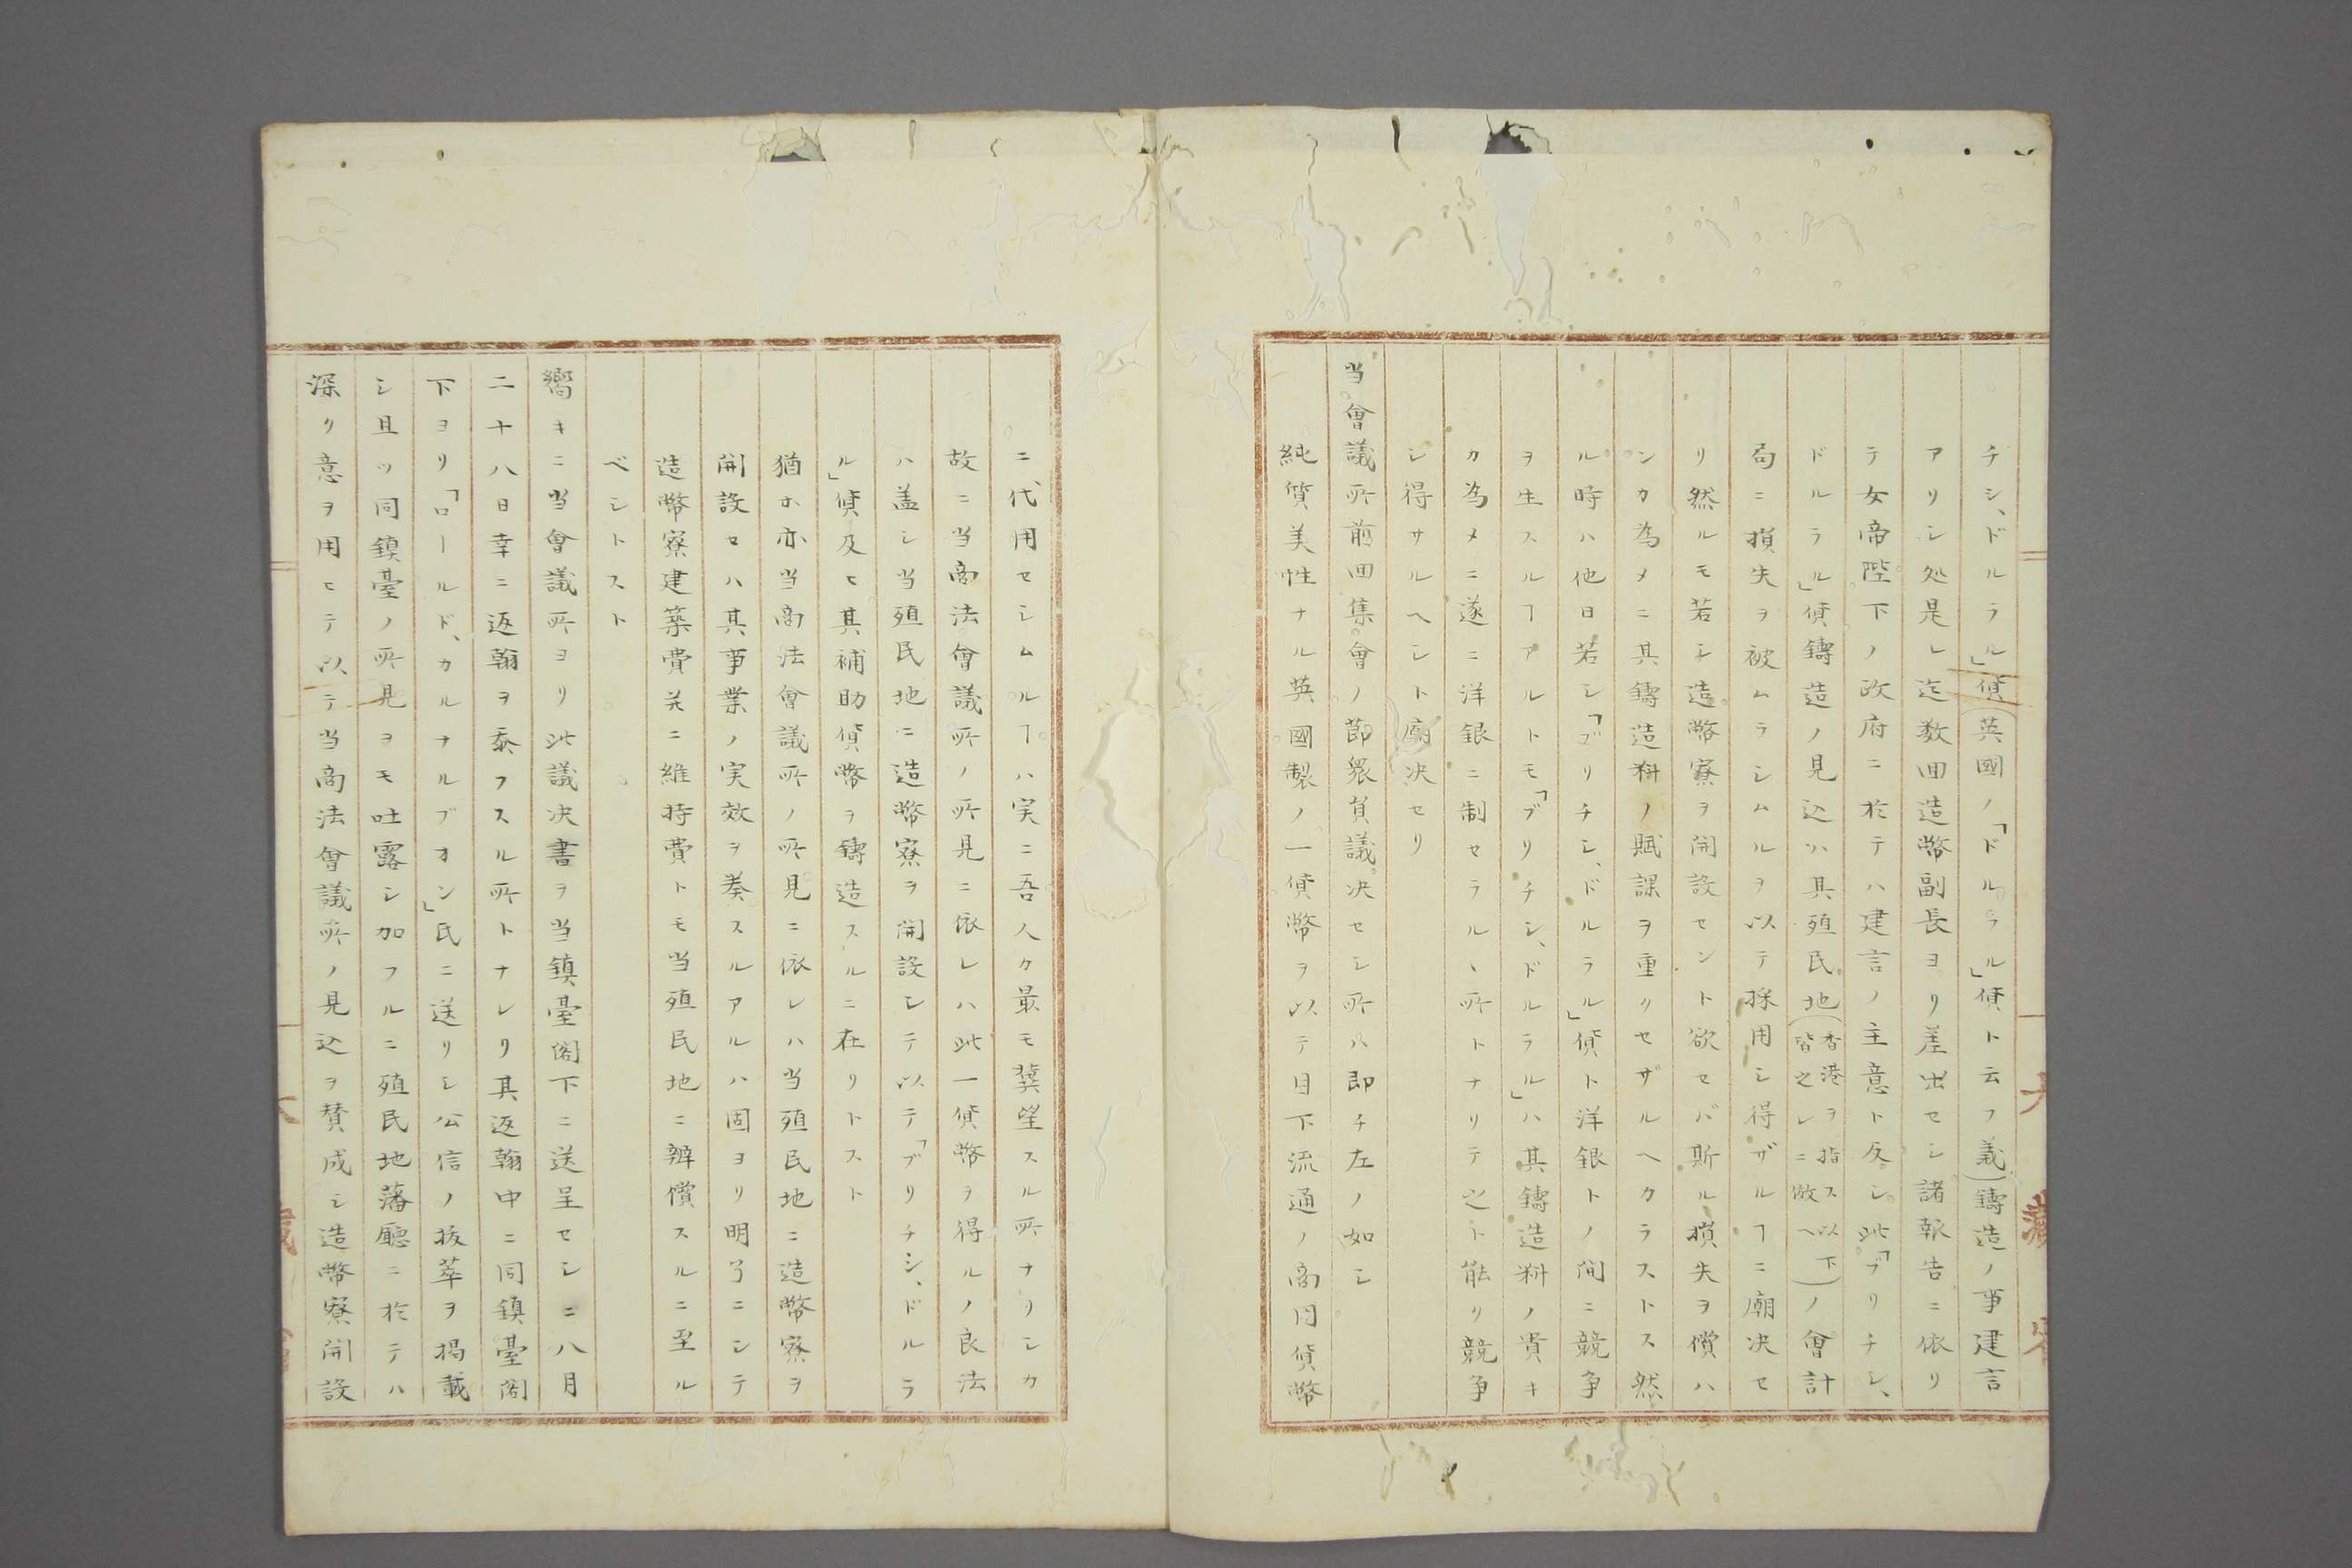 チシ、ドルラル」貨(英國ノ「ドルラル」貨ト云フ義)鑄造ノ事建言
アリシ処是レ迄数回造幣副長ヨリ差出セシ諸報告ニ依リ
テ女帝陛下ノ政府ニ於テハ建言ノ主意ト反シ此「ブリチシ、
ドルラル」貨鑄造ノ見込ハ其殖民地(香港ヲ指ス以下皆之レニ倣ヘ)ノ會計
局ニ損失ヲ被ムラシムルヲ以テ採用シ得ザルヿニ廟决セ
リ然ルモ若シ造幣寮ヲ開設セント欲セバ斯ル損失ヲ償ハ
ンカ為メニ其鑄造料ノ賦課ヲ重クセザルヘカラストス然
ル時ハ他日若シ「ブリチシ、ドルラル」貨ト洋銀トノ間ニ競争
ヲ生スルヿアルトモ「ブリチシ、ドルラル」ハ其鑄造料ノ貴キ
カ為メニ遂ニ洋銀ニ制セラルヽ所トナリテ之ト能ク競争
シ得サルヘシト廟决セリ
当會議所前回集會ノ節衆負議决セシ所ハ即チ左ノ如シ
純質美性ナル英國製ノ一貨幣ヲ以テ目下流通ノ商用貨幣
ニ代用セシムルヿハ実ニ吾人ケ最モ冀望スル所ナリシカ
故ニ当商法會議所ノ所見ニ依レハ此一貨幣ヲ得ルノ良法
ハ盖シ当殖民地ニ造幣寮ヲ開設シテ以テ「ブリチシ、ドルラ
ル」貨及ヒ其補助貨幣ヲ鑄造スルニ在リトスト
猶ホ亦当商法會議所ノ所見ニ依レハ当殖民地ニ造幣寮ヲ
開設セハ其事業ノ実效ヲ奏スルアルハ固ヨリ明了ニシテ
造幣寮建築費并ニ維持費トモ当殖民地ニ辨償スルニ至ル
ベシトスト
嚮キニ当會議所ヨリ此議决書ヲ当鎮臺閣下ニ送呈セシニ八月
二十八日幸ニ返翰ヲ忝フスル所トナレリ其返翰中ニ同鎮臺閣
下ヨリ「ロールド、カルナルブオン」氏ニ送リシ公信ノ抜萃ヲ揭載
シ且ツ同鎮臺ノ所見ヲモ吐露シ加フルニ殖民地藩廳ニ於テハ
深リ意ヲ用ヒテ以テ当商法會議所ノ見込ヲ賛成シ造幣寮開設